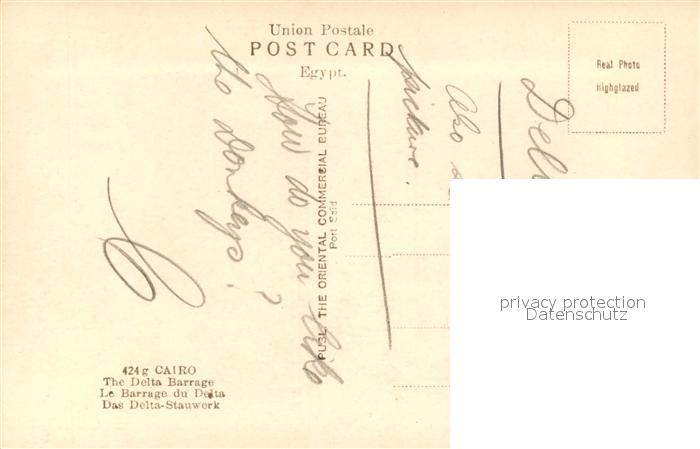 Union Postale
POST CARD
Egypt.
Real Photo
Highglazed
Also
picture.
How do you like
the donkeys?
PUBL. THE ORIENTAL COMMERCIAL BUREAU
Port Said
424 g CAIRO
The Delta Barrage
Le Barrage du Delta
Das Delta-Stauwerk
privacy protection
Datenschutz